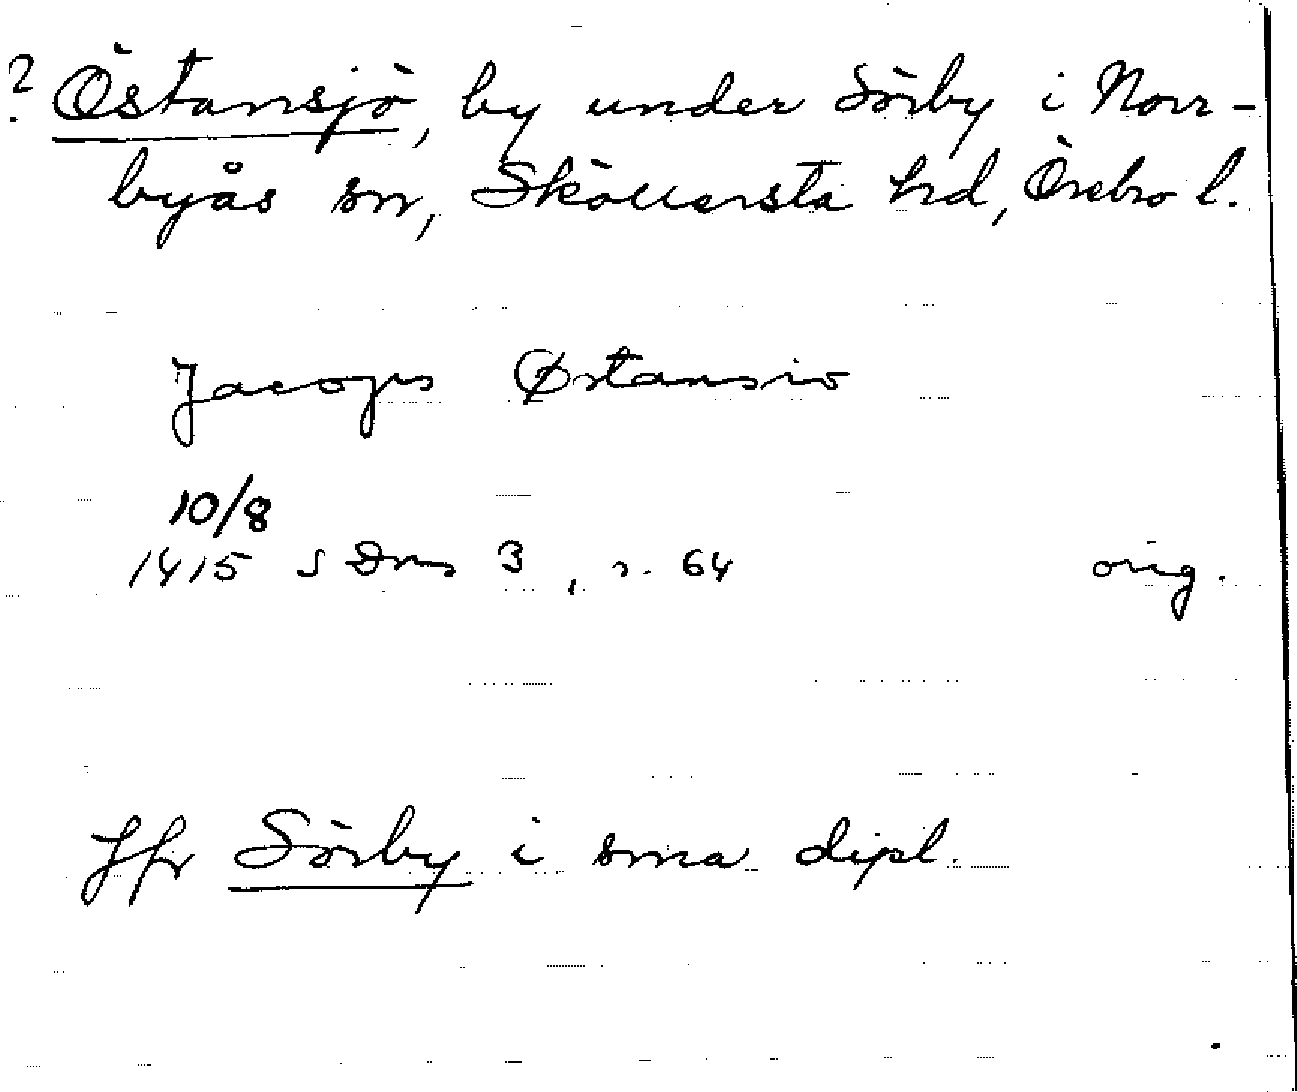 ? Östansjö, by under Sörby i Norr-
byås sn, Sköllersta hd, Örebro l.
Jacops Østansio
10/8
1415 S Dns 3, s. 64 orig.
Jfr Sörby i sma dipl.